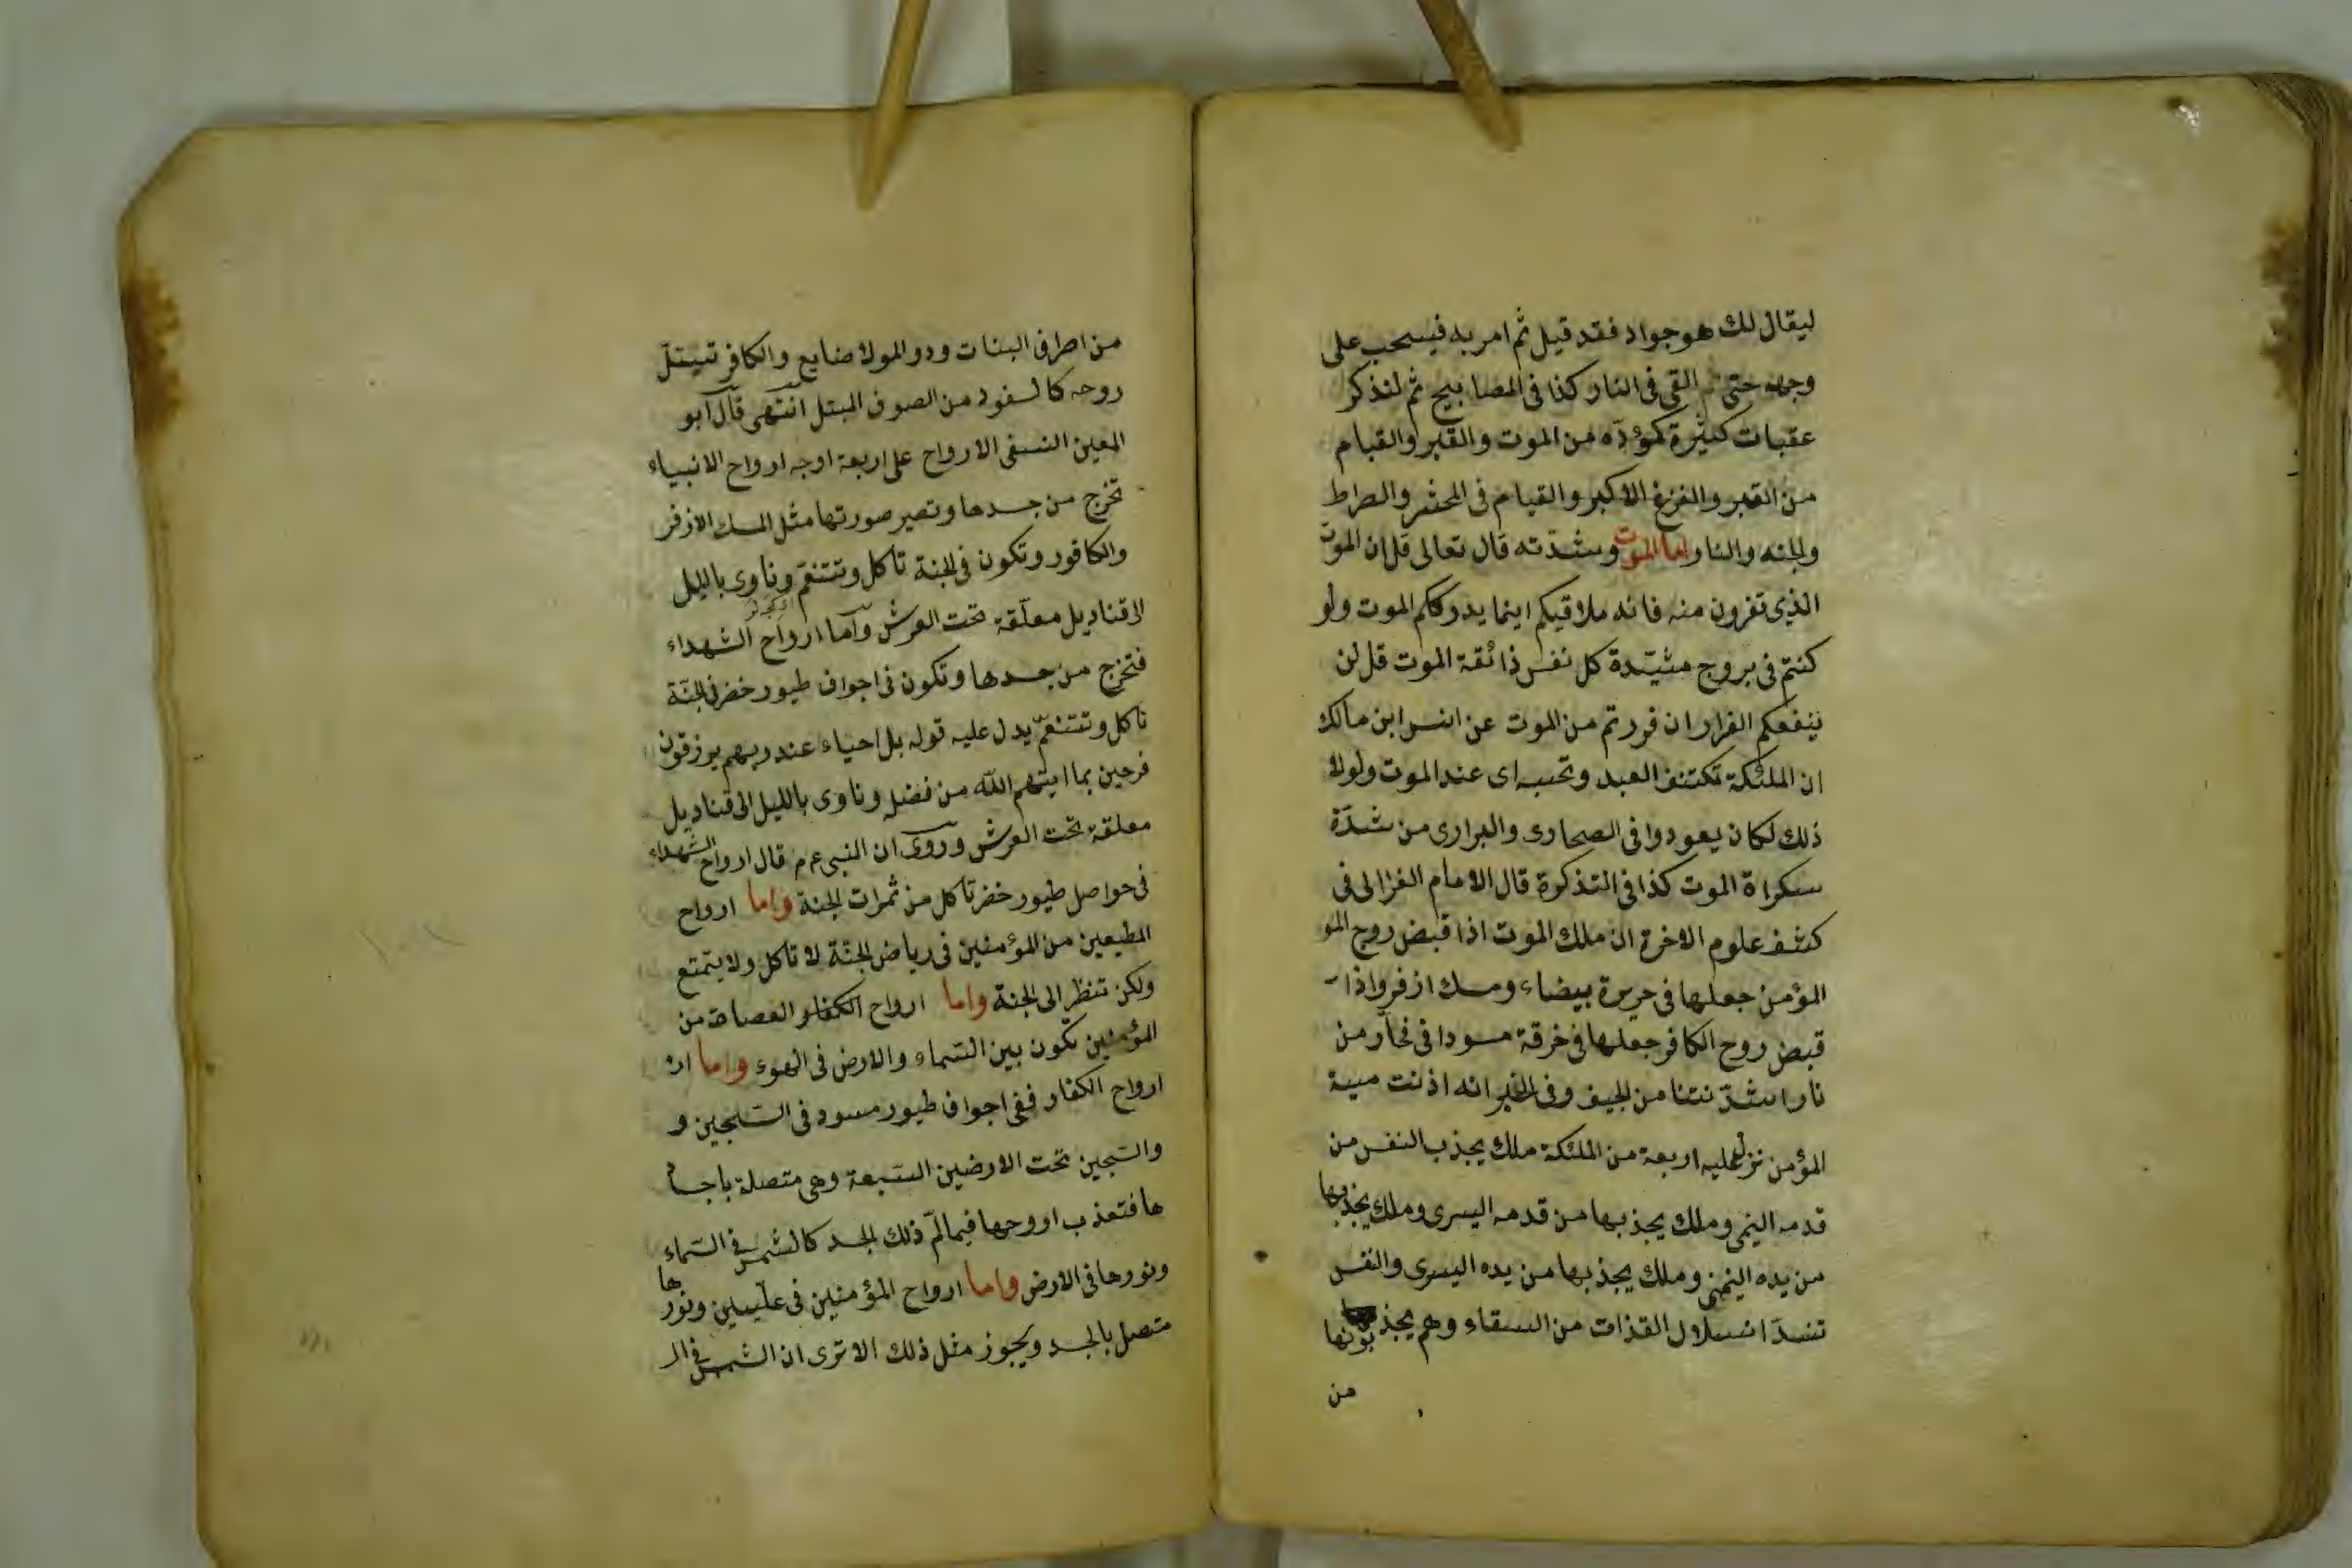 ليقال لك هو جواد فقد قيل ثم امر به فيسحب على
وجهه حتى القى فى النار كذا فى المصابيح ثم لنذكر
عقبات كثيرة من الموت والقبر والقيام
من القبر والفزع الاكبر والقيام فى المحشر والصراط
والجنه والنار اما الموت وشدّته قال تعالى قل ان الموت
الذى تفرون منه فانه ملاقيكم اينما يدرككم الموت ولو
كنتم فى بروج مشيّدة كل نفس ذائقة الموت قل لن
ينفعكم الفرار ان فررتم من الموت عن انس ابن مالك
ان الملئكة تكتنف العبد وتحبسه اى عند الموت ولولا
ذلك لكان يعودوا فى الصحارى والبرارى من شدّة
سكراة الموت كذا فى التذكرة قال الامام الغزالى فى
كشف علوم الاخرة ان ملك الموت اذا قبض روح المو
المؤمن جعلها فى حريرة بيضاء ومسك ازفر واذا
قبض روح الكافر جعلها فى خرقة سودا فى فخار من
نار اشدّ نتنا من الجيف وفى الخبر انه اذ نت ميىة
المؤمن نزل عليه اربعة من الملئكة ملك يجذب النفس من
قدمه اليمنى وملك يجذبها من قدمه اليسرى وملك يجذبها
من يده اليمنى وملك يجذبها من يده اليسرى والنفس
تنسدّ انسلال القذات من السقاء وهم يجذبونها
من
من اطراف البنات ورو المولا ضايع والكافر تسيتلّ
روحه كالسفود من الصوف المبتل انتهى قال ابو
المعين النسفى الارواح على اربعة اوجه ارواح الانبياء
تخرج من جسدها وتصير صورتها مثل المسك الازفر
والكافور وتكون فى الجنة تاكل وتتنعّم وتاوى بالليل
الى قناديل معلّقة تحت العرش واما ارواح الشهداء
فتخرج من جسدها وتكون فى اجواف طيور خضر فى الجنّة
تاكل وتتنعّم يدل عليه قوله بل احياء عند ربهم يرزقون
فرحين بما اتيهم اللّه من فضله وتاوى بالليل الى قناديل
معلقة تحت العرش وروى ان النبى عم قال ارواح الشهداء
فى حواصل طيور خضر تاكل من ثمرات الجنة واما ارواح
المطيعين من المؤمنين فى رياض الجنّة لا تاكل ولا يتمتع
ولكن تنظر الى الجنة واما ارواح الكفار العصاة من
المؤمنين تكون بين السّماء والارض فى الهوء واما ار
ارواح الكفار ففى اجواف طيور سود فى السّجين و
والسّجين تحت الارضين السّبعة وهى متصلة باجسا
ها فتعذب اروحها فيما لمّ ذلك الجسد كالشمس فى السّماء
ونورها فى الارض واما ارواح المؤمنين فى علّيين ونورها
متصل بالجسد ويجوز مثل ذلك الا ترى ان الشمس فى الـ